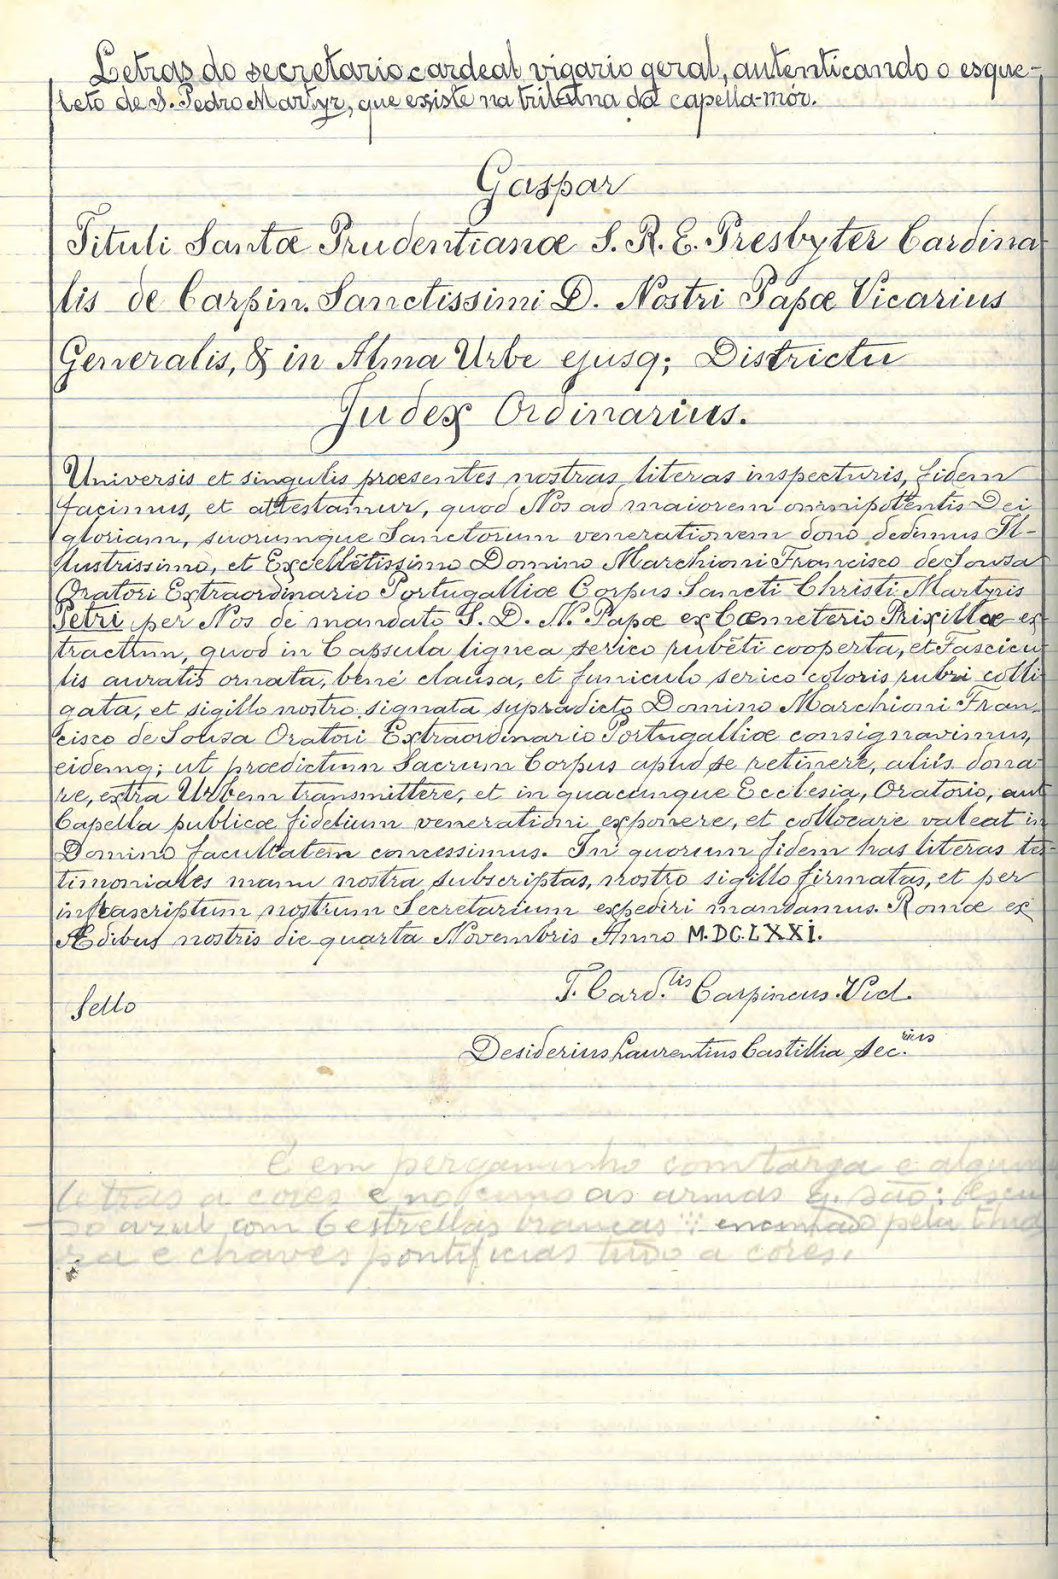 Letras do secretario cardeal vigario geral, autenticando o esque-
leto de S. Pedro Martyr, que existe na tribuna da capella-mór.
Gaspar
Tituli Santæ Prudentianæ S. R. E. Presbyter Cardina
lis de Carpin. Sanctissimi D. Nostri Papæ Vicarius
Generalis, & in Alma Urbe ejusq; Districtu
Judex Ordinarius.
Universis et singulis præsentes nostras literas inspecturis, fidem
facimus, et attestamur, quod Nos ad maiorem omnipotentis Dei
gloriam, suorumque Sanctorum venerationem dono dedimus Il-
lustrissimo, et Excellẽtissimo Domino Marchioni Francisco de Sousa
Oratori Extraordinario Portugalliæ Corpus Sancti Christi Martyris
Petri per Nos de mandato S. D. N. Papæ ex Cœmeterio Prixillæ ex
tractum, quod in Capsula lignea serico rubẽti cooperta, et Fascicu
lis auratis ornata, bené clausa, et funiculo serico coloris rubri colli
gata, et sigillo nostro signata supradicto Domino Marchioni Fran-
cisco de Sousa Oratori Extraordinario Portugalliæ consignavimus,
eidemq; ut prædictum Sacrum Corpus apud se retinere, aliis dona
re, extra Urbem transmittere, et in quacumque Ecclesia, Oratorio, aut
Capella publicæ fidelium venerationi exponere, et collocare valeat in
Domino facultatem concessimus. In quorum fidem has literas tes-
timoniales manu nostra subscriptas, nostro sigillo firmatas, et per
infrascriptum nostrum Secretarium expediri mandamus. Romæ ex
Ædibus nostris die quarta Novembris Anno M.DC.LXXI.
Sello
T. Card.lis Carpineus. Vicl.
Desiderius Laurentius Castillia Sec.rius
É em pergaminho com tarja e algumas
letras a cores e no cimo as armas q. são: Escu
do azul com 6 estrellas brancas encimado pela thia
ra e chaves pontificias tudo a cores.